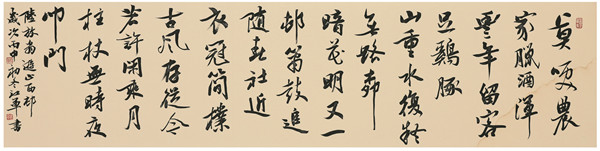 莫笑農
家臘酒渾
豐年留客
足鷄豚
山重水復疑
無路柳
暗花明又一
邨簫鼓追
随春社近
衣冠簡樸
古風存從今
若許閑乘月
拄杖無時夜
叩門
陸放翁遊山西邨
歲次丙申初冬書